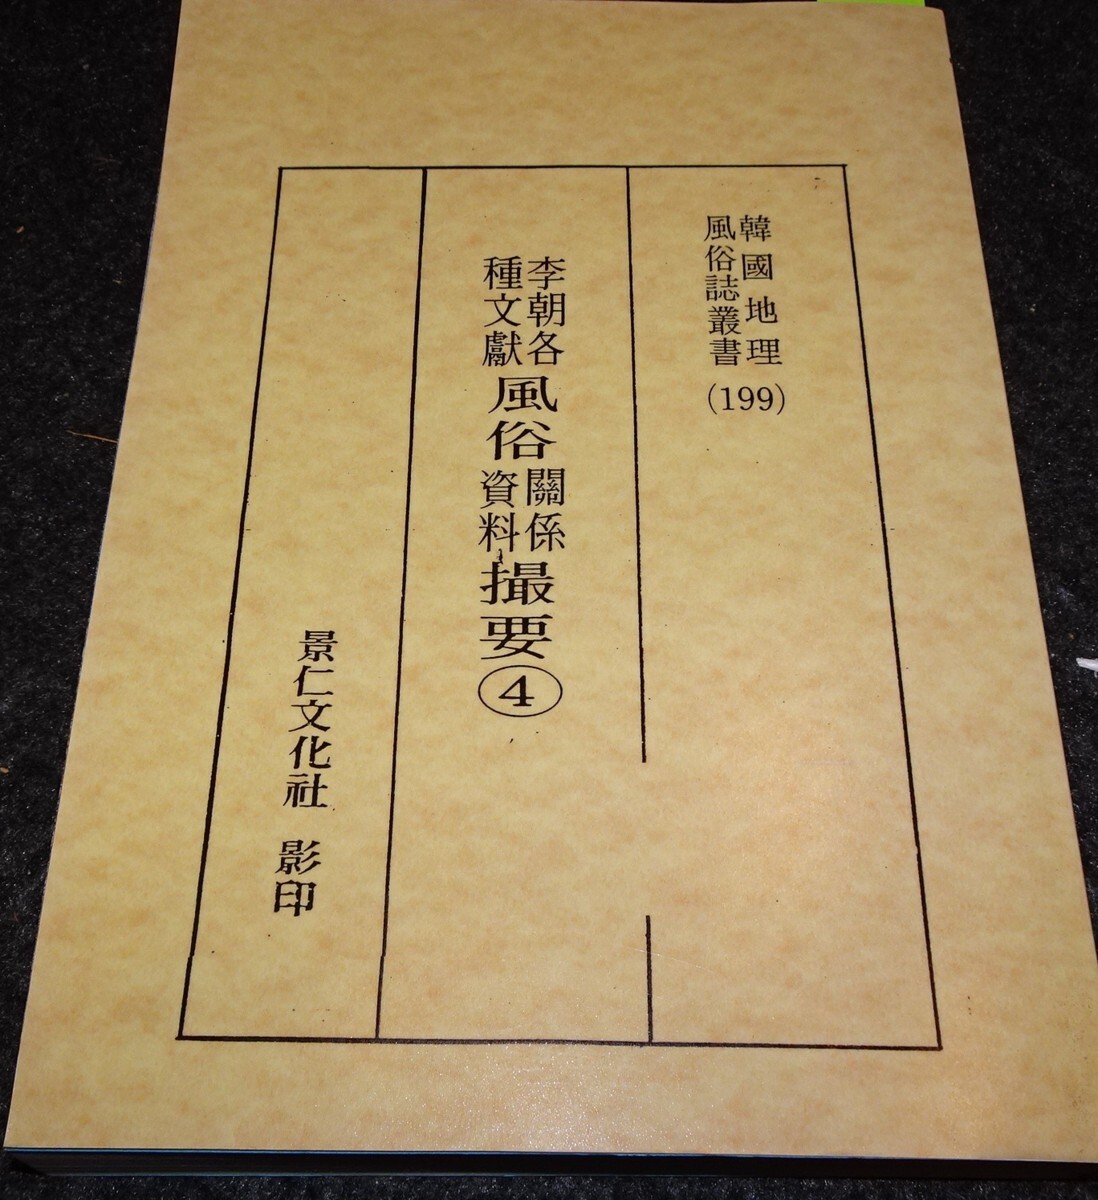 韓國地理
風俗誌叢書
(199)
李朝各
種文獻
風俗
關係
資料
撮要④
景仁文化社 影印